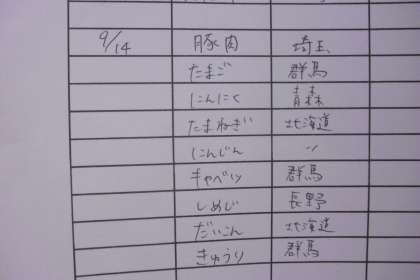 9/14 豚肉 埼玉
たまご 群馬
にんにく 青森
たまねぎ 北海道
にんじん 〃
キャベツ 群馬
しめじ 長野
だいこん 北海道
きゅうり 群馬